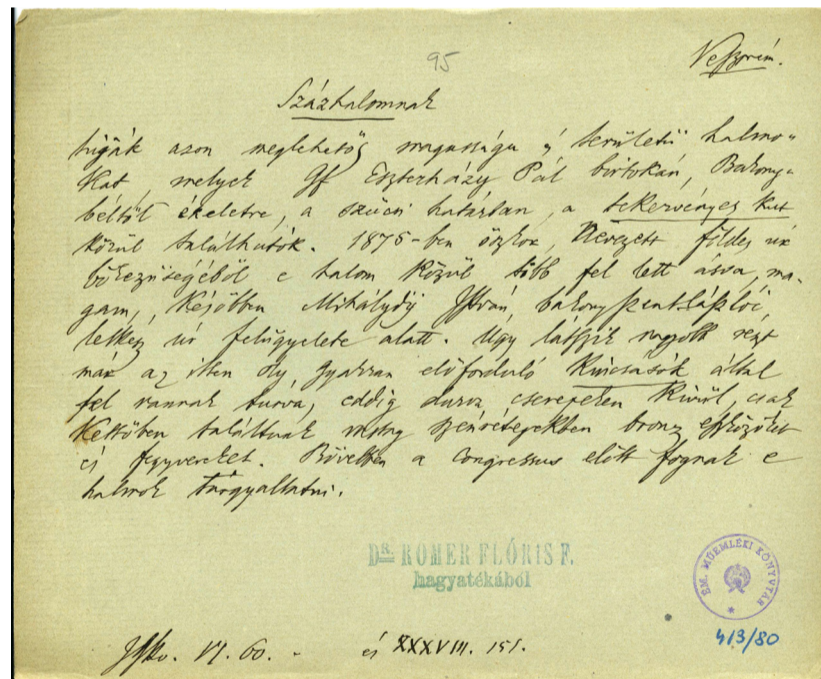 95
Veszprém.
Százhalomnak
hijják azon meglehetős magasságu s területü halmo-
kat, melyek Gf Eszterházy Pál birtokán, Bakony-
béltől é keletre, a szücsi határban, a tekervényes kut
körül találhatók. 1875-ben őszkor, Nevezett földes úr
bőkezűségéből e halom közül több fel lett ásva, ma-
gam, később Mihálydy István, bakonyszentlászlói
lelkész úr felügyelete alatt. Ugy látszik nagyobb részt
már az itten oly gyakran előforduló Kincsásók által
fel vannak turva, eddig durva cserepeken kivül, csak
Kettőben találtunk szénrétegekben bronz eszközöket
és fegyvereket. Bővebben a Congressus előtt fognak e
halmok tárgyaltatni.
DR. ROMER FLÓRIS F.
hagyatékából
ÉM. MŰEMLÉKI KÖNYVTÁR
413/80
VI. 60. - és XXXVIII. 151.